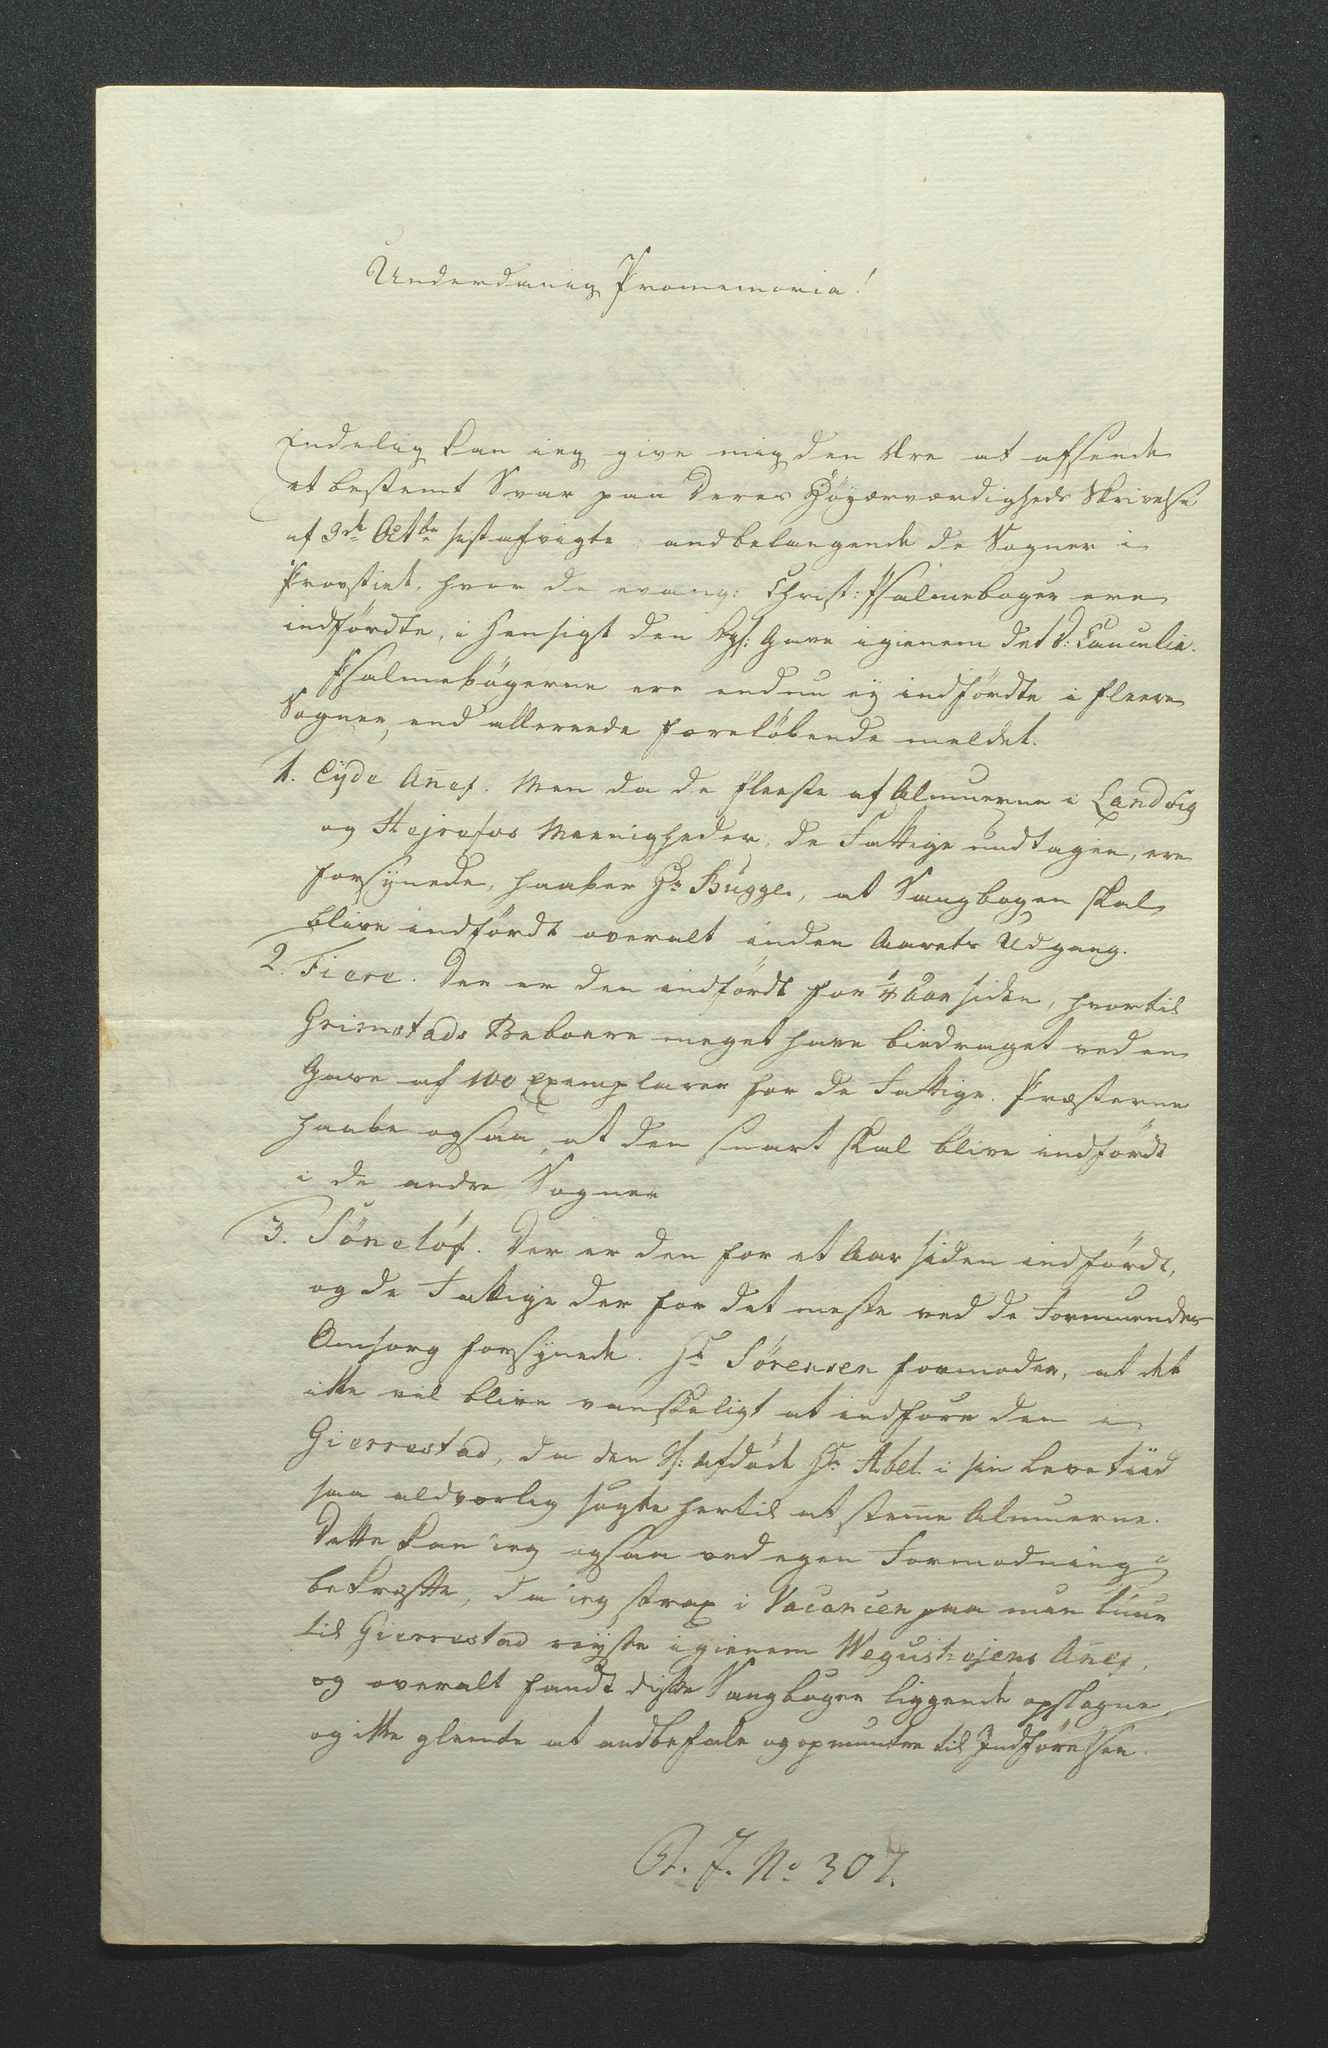 Underdanig Promemoria!
Endelig kan ieg give mig den Ære at afsende
et bestemt Svar paa Deres Høyærværdigheds Skrivelse
af 9de Octbr sistafvigte; andbelangende de Sogner i
Provstiet, hvor de evang: Christ: Psalmebøger ere
indførdte, i Hensigt den Kgl: Gave igienem det D: Cancelie.
Psalmebøgerne ere endnu ey indførdte i fleere
Sogner, end allereede foreløbende meldet.
1. Eyde Anex. Men da de fleeste af Almuerne i Landvig
og Hejrefos Meenigheder, de Fattige undtagen, ere
forsynede, haaber Hr. Bugge, at Sangbogen skal
blive indførdt overalt inden Aarets Udgang.
2. Fiere. Der er den indførdt for 1/4 Aar siden, hvortil
Grimstads Beboere meget have biedraget ved en
Gave af 100 Exemplarer for de Fattige. Præsterne
haabe ogsaa, at den snart skal blive indførdt
i de andre Sogner
3. Søneløf. Der er den for et Aar siden indførdt,
og de Fattige der for det meste ved de Formuendes
Omsorg forsynede. Hr Sørensen formoder, at det
ikke vil blive vanskeligt at indføre den i
Gierrestad, da den S: Afdøde Hr. Abel i sin Levetiid
saa alvorlig søgte hertil at stemme Almuerne.
Dette kan ieg ogsaa ved egen Formodning
bekræfte, da ieg strax i Vacancen paa min Tuur
til Gierrestad reyste igienem Wegusheiens Anex,
og overalt fandt disse Sangbøger liggende opslagne,
og ikke glemte at andbefale og opmuntre til Indførelsen.
No. 307.